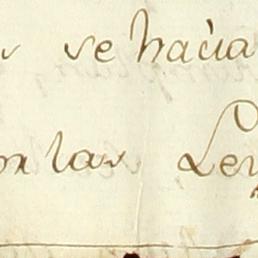 se hacia
las Ley